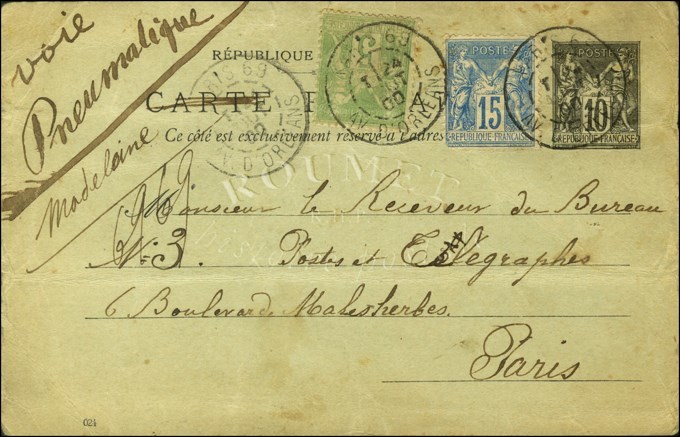 voie
Pneumatique
Madeleine
RÉPUBLIQUE
CARTE
Ce côté est exclusivement réservé à l'adres
PARIS 69
24
OCT
00
AV. D'ORLEANS
POSTE
15
REPUBLIQUE FRANÇAISE
POSTE
10
REPUBLIQUE FRANÇAISE
ROUMET
Monsieur le Receveur du Bureau
N° 3. Postes et Télégraphes
6 Boulevard Malesherbes.
Paris
024